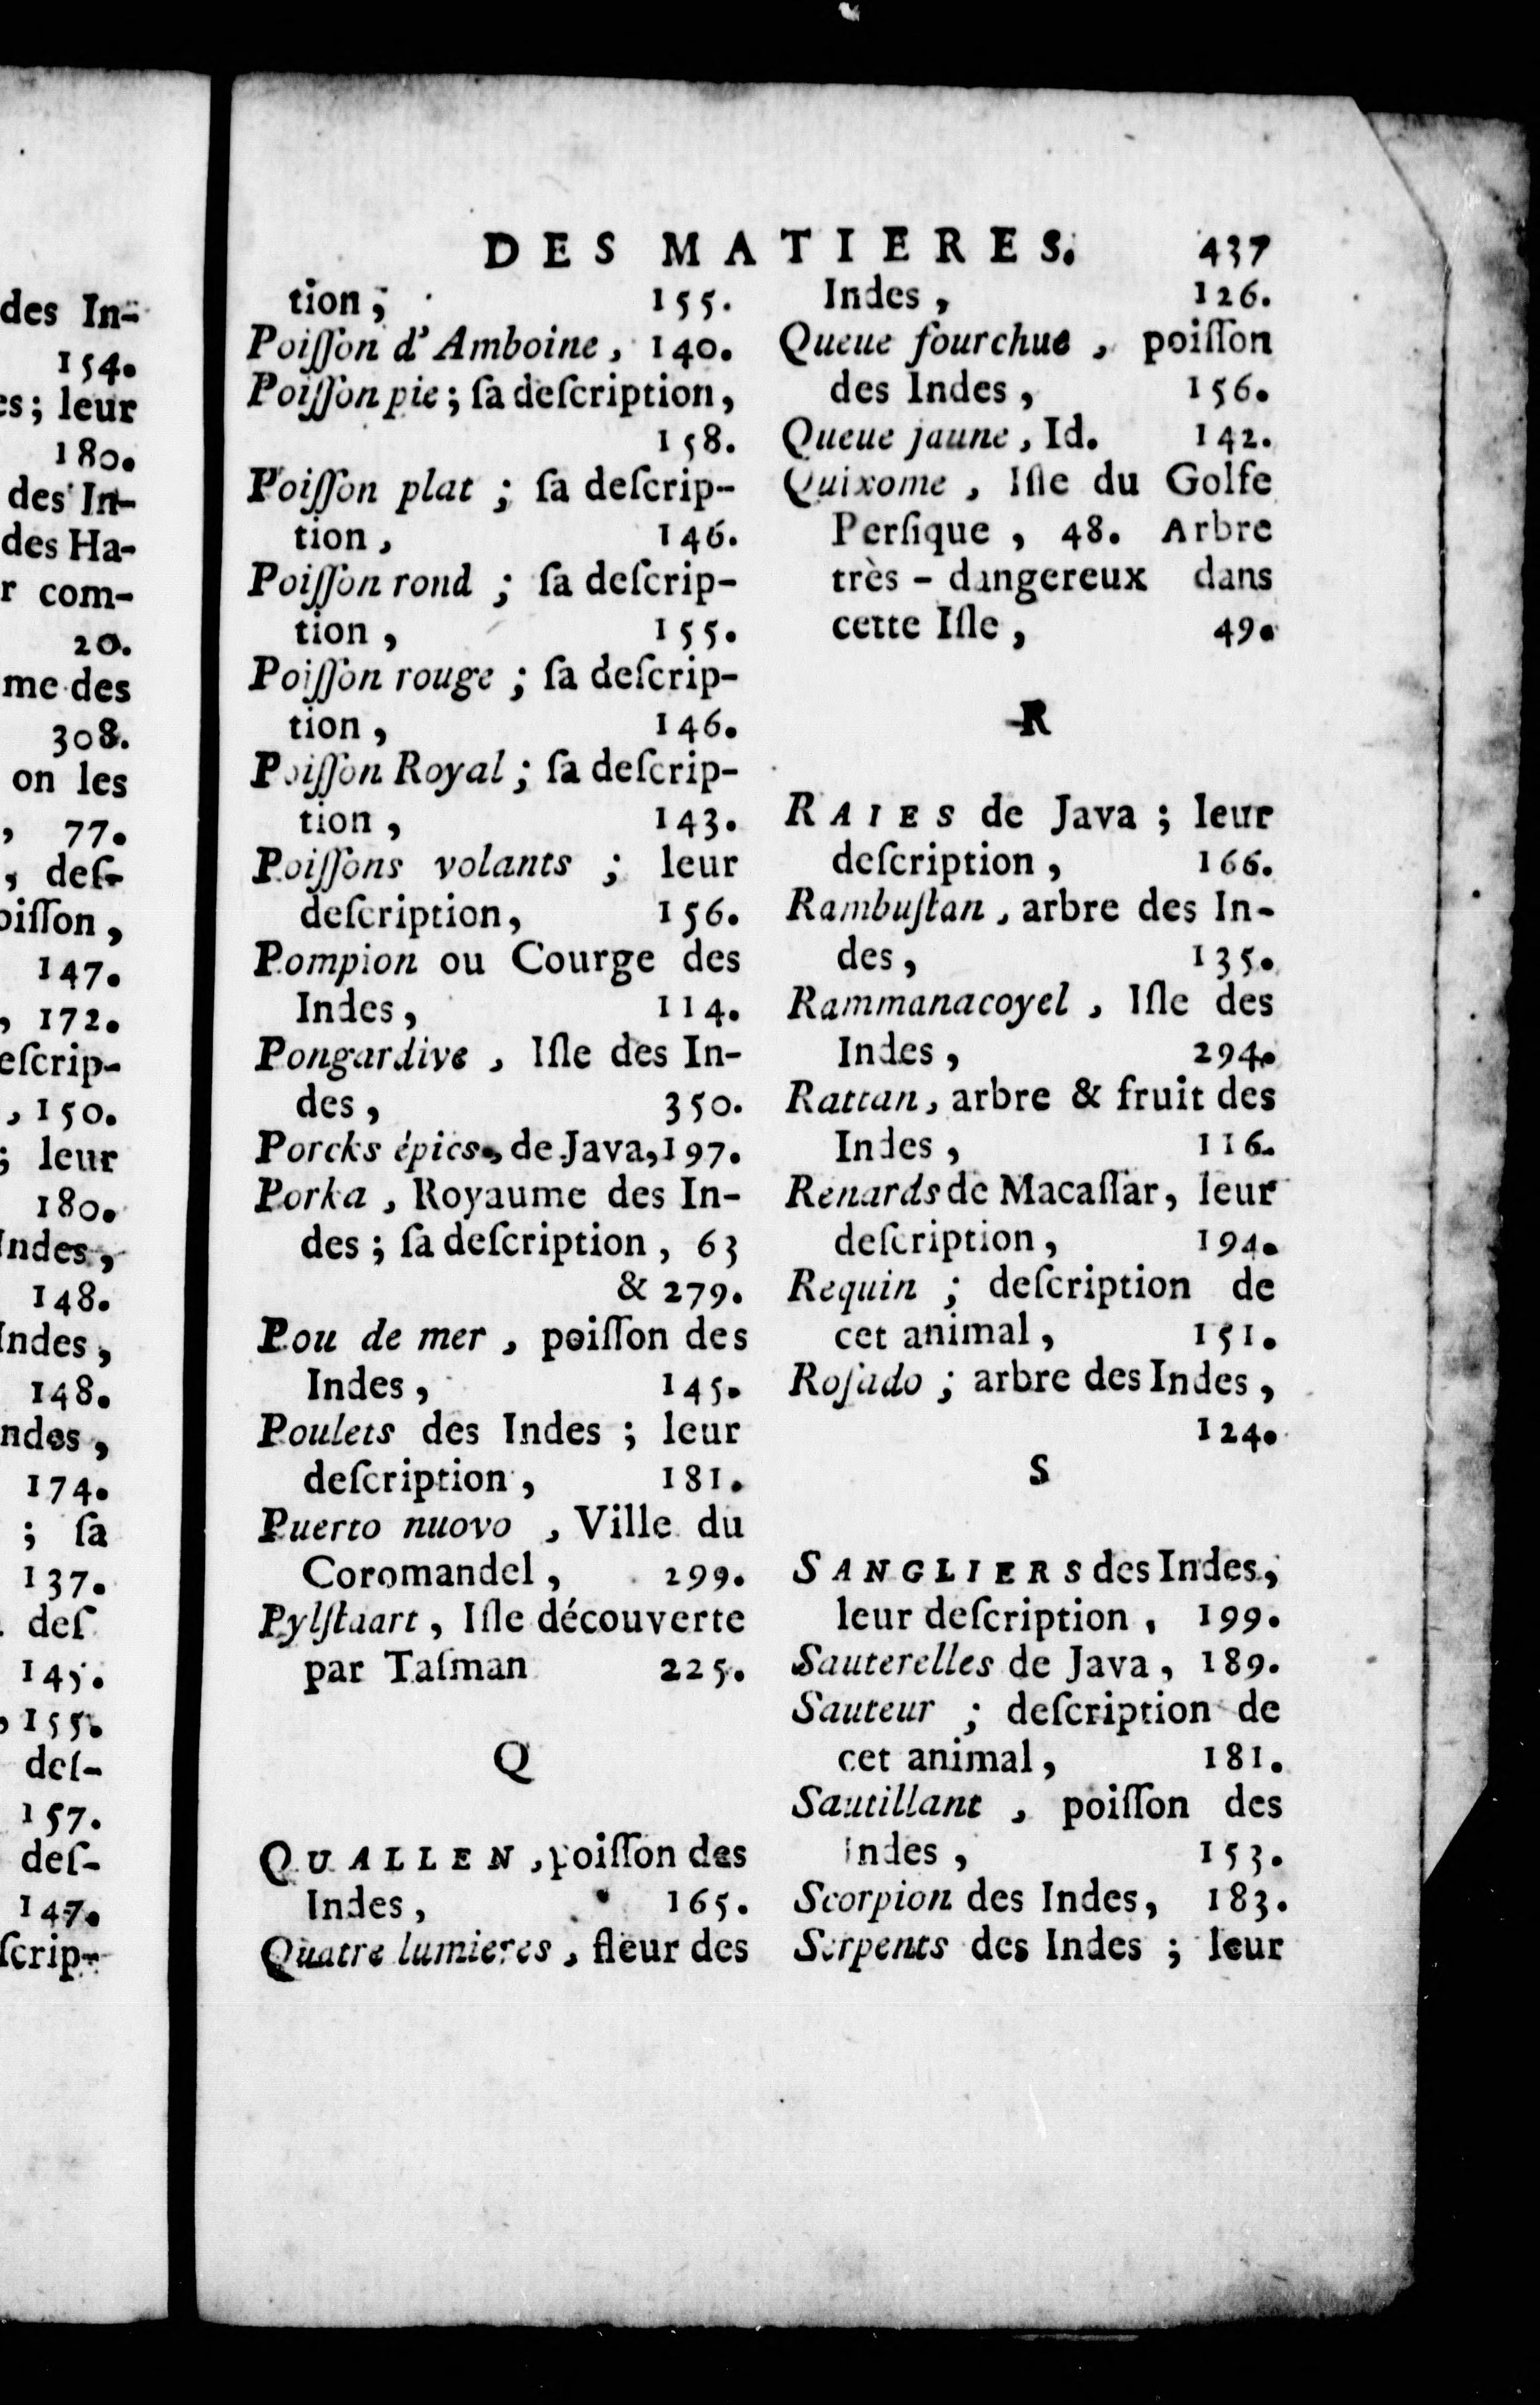 des In-
154.
es; leur
180.
des In-
des Ha-
r com-
20.
me des
308.
on les
, 77.
, deſ-
oiſſon,
147.
, 172.
eſcrip-
, 150.
; leur
180.
Indes,
148.
Indes,
148.
ndes,
174.
; ſa
137.
deſ
145.
, 155.
deſ-
157.
deſ-
147.
ſcrip-
DES MATIERES. 437
tion; 155.
Poiſſon d'Amboine, 140.
Poiſſon pie; ſa deſcription,
158.
Poiſſon plat; ſa deſcrip-
tion, 146.
Poiſſon rond; ſa deſcrip-
tion, 155.
Poiſſon rouge; ſa deſcrip-
tion, 146.
Poiſſon Royal; ſa deſcrip-
tion, 143.
Poiſſons volants; leur
deſcription, 156.
Pompion ou Courge des
Indes, 114.
Pongardive, Iſle des In-
des, 350.
Porcks épics, de Java, 197.
Porka, Royaume des In-
des; ſa deſcription, 63
& 279.
Pou de mer, poiſſon des
Indes, 145.
Poulets des Indes; leur
deſcription, 181.
Puerto nuovo, Ville du
Coromandel, 299.
Pylſtaart, Iſle découverte
par Taſman 225.
Q
QUALLEN, poiſſon des
Indes, 165.
Quatre lumieres, fleur des
Indes, 126.
Queue fourchue, poiſſon
des Indes, 156.
Queue jaune, Id. 142.
Quixome, Iſle du Golfe
Perſique, 48. Arbre
très-dangereux dans
cette Iſle, 49.
R
RAIES de Java; leur
deſcription, 166.
Rambuſtan, arbre des In-
des, 135.
Rammanacoyel, Iſle des
Indes, 294.
Rattan, arbre & fruit des
Indes, 116.
Renards de Macaſſar, leur
deſcription, 194.
Requin; deſcription de
cet animal, 151.
Roſado; arbre des Indes,
124.
S
SANGLIERS des Indes,
leur deſcription, 199.
Sauterelles de Java, 189.
Sauteur; deſcription de
cet animal, 181.
Sautillant, poiſſon des
Indes, 153.
Scorpion des Indes, 183.
Serpents des Indes; leur